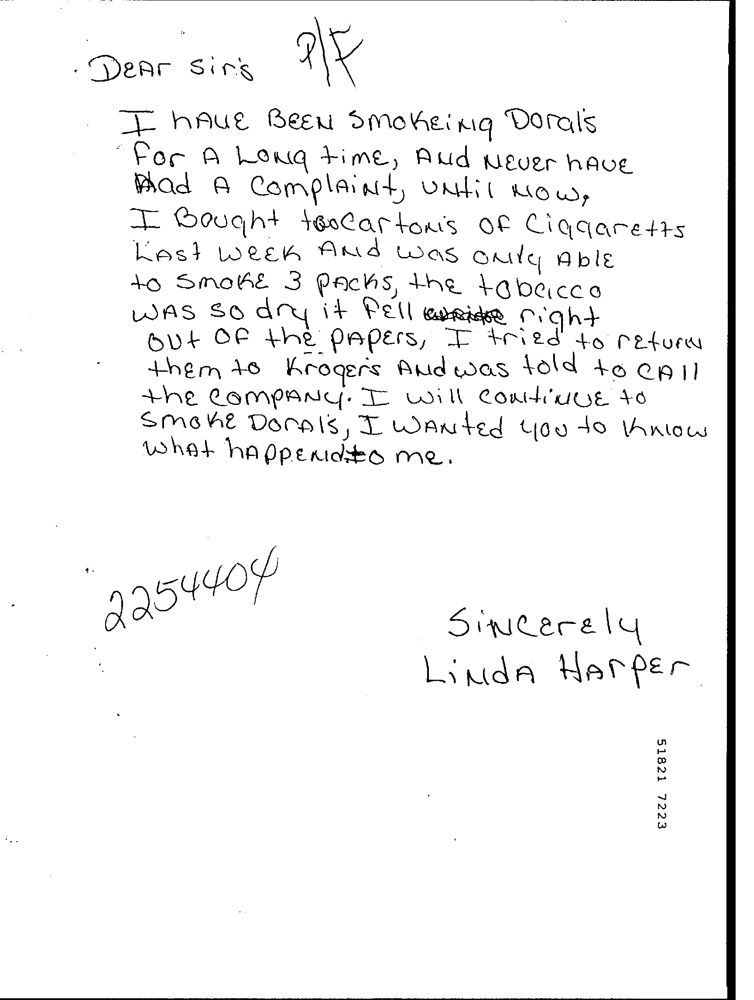 P/F
Dear Sir's
I have been smokeing Doral's
for a long time, and never have
had a complaint, until now,
I bought too cartons of ciggaretts
last week and was only able
to smoke 3 packs, the tobacco
was so dry it fell right
out of the papers, I tried to return
them to Kroger's and was told to call
the company. I will continue to
smoke Doral's, I wanted you to know
what happend to me.
2254404
Sincerely
Linda Harper
51821 7223